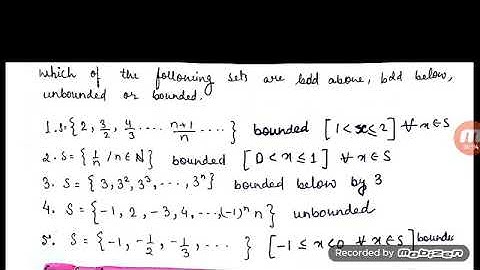 which of the following sets are bdd above, bdd below,
unbounded or bounded.
1. S={2, 3/2, 4/3 .... n+1/n ....} bounded [1<x≤2] ∀ x∈S
2. S = {1/n / n∈N} bounded [0<x≤1] ∀ x∈S
3. S = {3, 3², 3³, ..., 3ⁿ} bounded below by 3
4. S = {-1, 2, -3, 4, ...,(-1)ⁿ n} unbounded
5. S = {-1, -1/2, -1/3, ... } [-1≤x<0 ∀ x∈S] bounde
RECORDED WITH
Mobizen